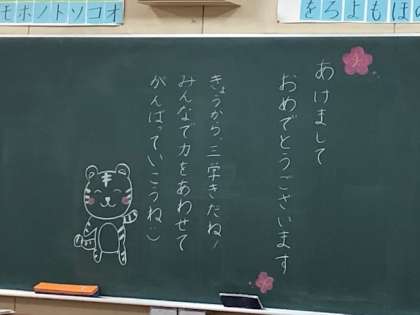 モホノトソコオ
をろよもほの
あけまして
おめでとうございます
きょうから、三学きだね！
みんなで力をあわせて
がんばっていこうね:)